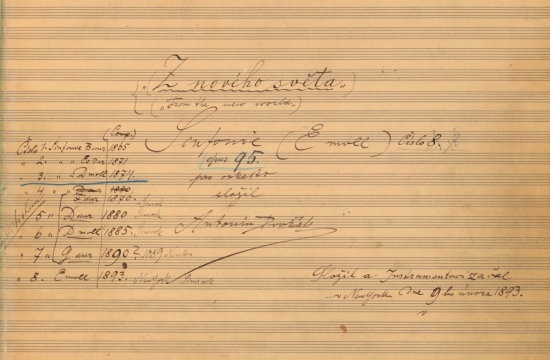 „Z nového světa“
(„From the new world“)
Sinfonie (E moll) Číslo 8.
opus 95.
pro orkestr
složil
Antonín Dvořák
(Comp.)
Číslo 1. Sinfonie B dur 1865
„ 2. „ Es dur 1871
„ 3. „ D moll 1874
„ 4 „ D dur 1880
F dur 1876.
„ 5 „ D dur 1880
„ 6 „ D moll 1885.
„ 7 „ G dur 1890? 1889
„ 8. E moll 1893. New York
Složil a Instrumentovi začal
v New Yorku Dne 9ho února 1893.